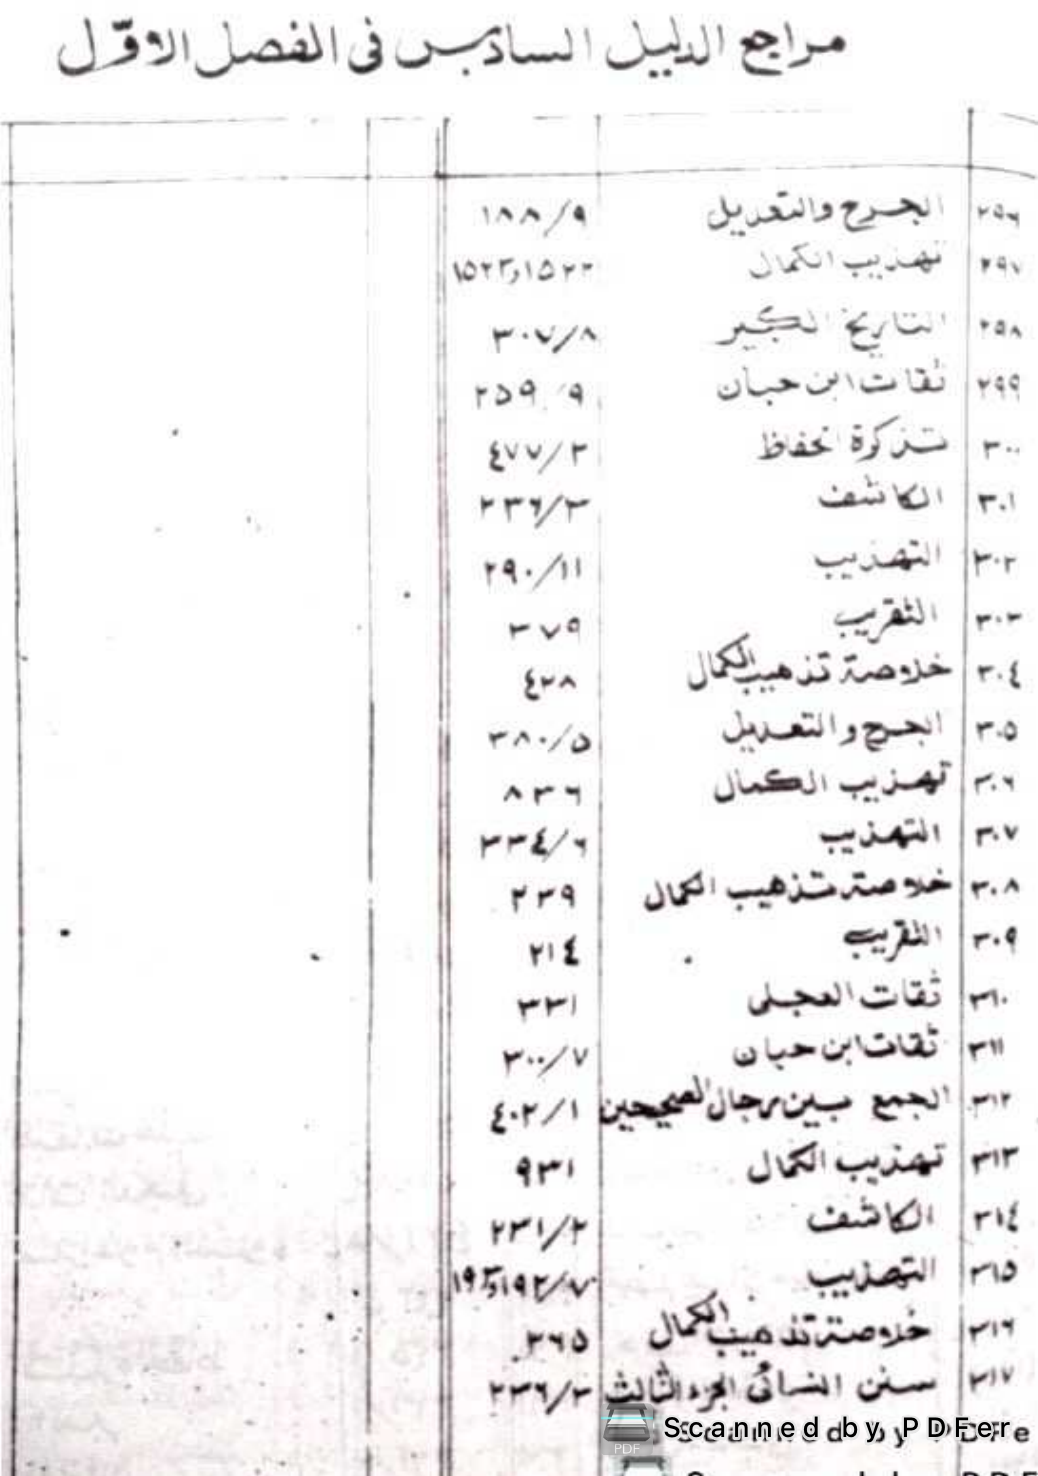 مراجع الدليل السادس فى الفصل الاوّل
٢٩٦ الجرح والتعديل ٩/١٨٨
٢٩٧ تهذيب الكمال ١٥٢٢و١٥٢٣
٢٩٨ التاريخ الكبير ٨/٣٠٧
٢٩٩ ثقات ابن حبان ٩/٢٥٩
٣٠٠ تذكرة الحفاظ ٢/٤٧٧
٣٠١ الكاشف ٣/٢٣٦
٣٠٢ التهذيب ١١/٢٩٠
٣٠٣ التقريب ٣٧٩
٣٠٤ خلاصة تذهيب الكمال ٤٢٨
٣٠٥ الجرح والتعديل ٥/٣٨٠
٣٠٦ تهذيب الكمال ٨٣٦
٣٠٧ التهذيب ٦/٣٣٤
٣٠٨ خلاصة تذهيب الكمال ٢٣٩
٣٠٩ التقريب ٢١٤
٣١٠ ثقات العجلى ٣٣١
٣١١ ثقات ابن حبان ٧/٣٠٠
٣١٢ الجمع بين رجال الصحيحين ١/٤٠٢
٣١٣ تهذيب الكمال ٩٣١
٣١٤ الكاشف ٢/٢٣١
٣١٥ التهذيب ٧/١٩٢و١٩٣
٣١٦ خلاصة تذهيب الكمال ٢٦٥
٣١٧ سنن النسائى الجزء الثالث ٣/٢٣٦
Scanned by PDFer
PDF